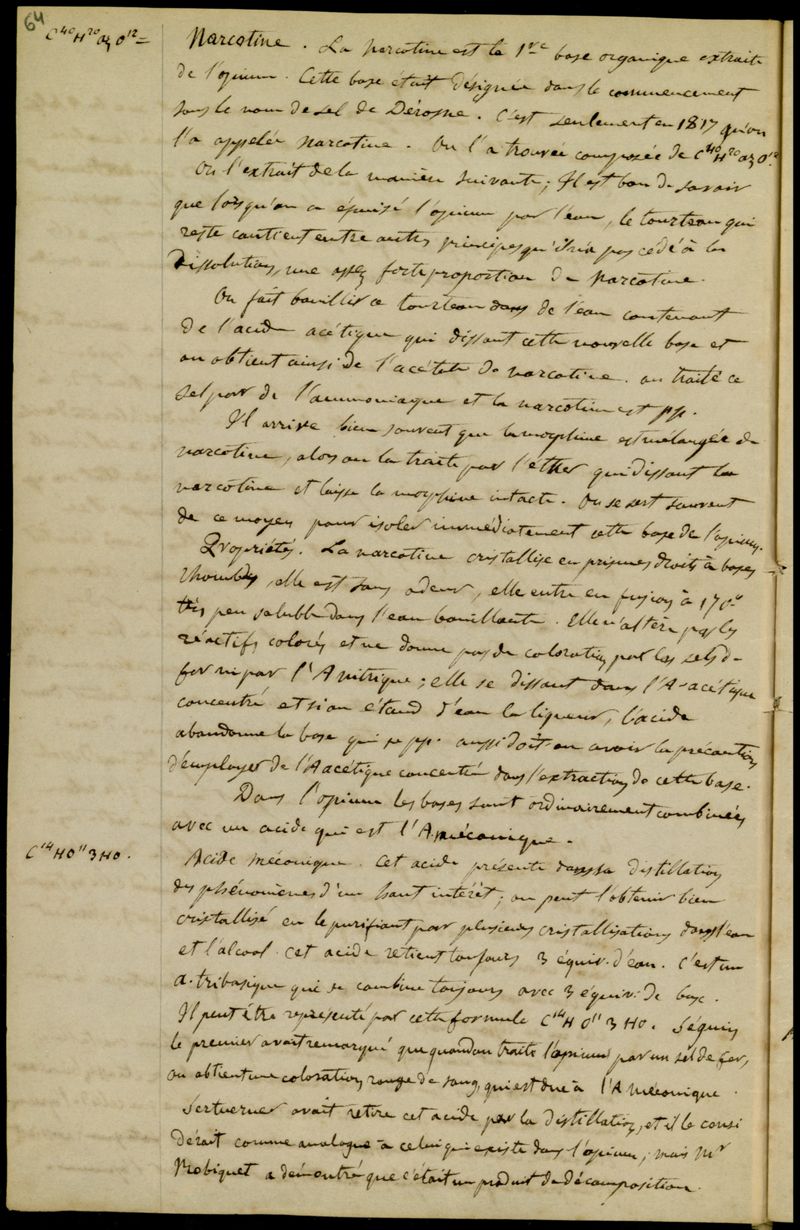 64
C⁴⁰H²⁰az O¹² =
Narcotine. La narcotine est la 1re base organique extraite
de l'opium. Cette base était désignée dans le commencement
sous le nom de sel de Derosne. C'est seulement en 1817 qu'on
l'a appelée narcotine. On l'a trouvée composée de C⁴⁰H²⁰az O¹²
On l'extrait de la manière suivante; Il est bon de savoir
que lorsqu'on a épuisé l'opium par l'eau, le tourteau qui
reste contient entre autres principes qu'il n'a pas cédé à la
Dissolution, une assez forte proportion de Narcotine.
On fait bouillir ce tourteau dans de l'eau contenant
de l'acide acétique qui dissout cette nouvelle base et
on obtient ainsi de l'acétate de narcotine. on traite ce
sel par de l'ammoniaque et la narcotine est pp.
Il arrive bien souvent que la morphine est mélangée de
narcotine, alors on la traite par l'éther qui dissout la
narcotine et laisse la morphine intacte. On se sert souvent
de ce moyen pour isoler immédiatement cette base de l'opium.
Propriétés. La narcotine cristallise en prismes droits à bases
rhombes, elle est sans odeur, elle entre en fusion à 170°
très peu soluble dans l'eau bouillante. Elle n'altère pas les
réactifs colorés et ne donne pas de coloration par les sels de
fer ni par l'A nitrique; elle se dissout dans l'A acétique
concentré et si on étend d'eau la liqueur, l'acide
abandonne la base qui se pp. aussi doit-on avoir la précaution
d'employer de l'A acétique concentré dans l'extraction de cette base.
Dans l'opium les bases sont ordinairement combinées
avec un acide qui est l'A. méconique.
C¹⁴HO¹¹ 3HO.
Acide Méconique. Cet acide présente dans sa distillation
des phénomènes d'un haut intérêt; on peut l'obtenir bien
cristallisé en le purifiant par plusieurs cristallisations dans l'eau
et l'alcool. cet acide retient toujours 3 équiv. d'eau. C'est un
a. tribasique qui se combine toujours avec 3 équiv. de base.
Il peut être représenté par cette formule C¹⁴HO¹¹ 3HO. Séguin
le premier avait remarqué que quand on traite l'opium par un sel de fer,
on obtient une coloration rouge de sang, qui est due à l'A Méconique.
Sertuerner avait retiré cet acide par la distillation, et il le consi
dérait comme analogue à celui qui existe dans l'opium, mais Mr
Robiquet a démontré que c'était un produit de décomposition.